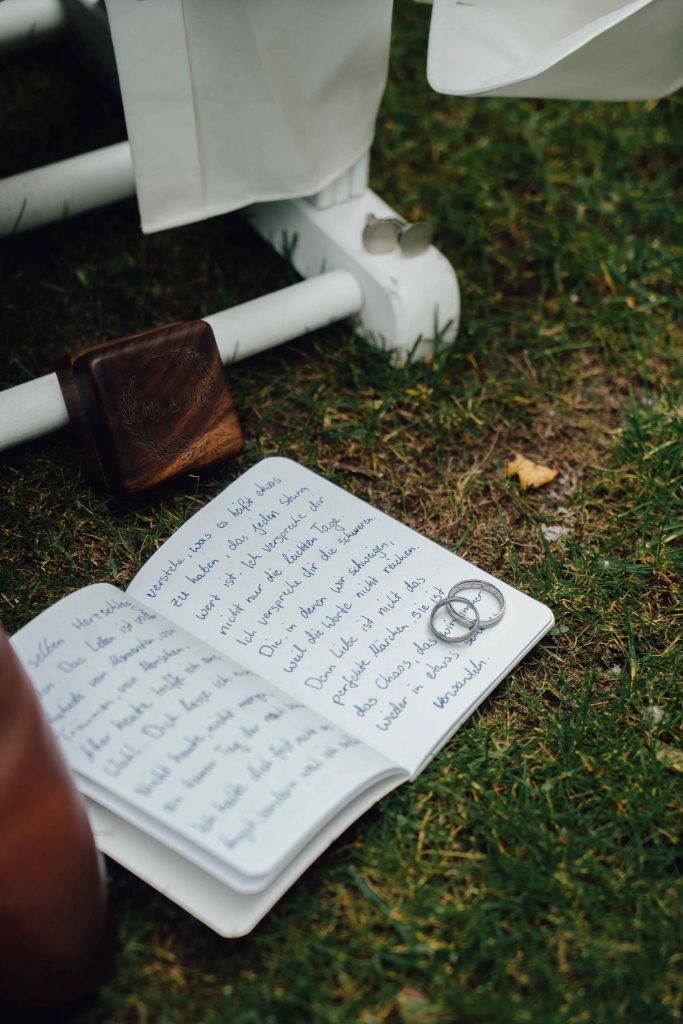 selben Herzschlag
Das Leben ist voller
von Momenten von
Träumen von Menschen.
Aber heute treffe ich eine
Wahl. Dich lasse ich nie
Nicht heute nicht morgen
an keinem Tag der noch
Ich halte dich fest nicht
Angst sondern weil ich
verstehe, was es heißt etwas
zu haben, das jeden Sturm
wert ist. Ich verspreche dir
nicht nur die leichten Tage
Ich verspreche dir die schweren
Die, in denen wir schweigen,
weil die Worte nicht reichen.
Denn Liebe ist nicht das
perfekte Märchen, sie ist
das Chaos, das wir immer
wieder in etwas
verwandeln.